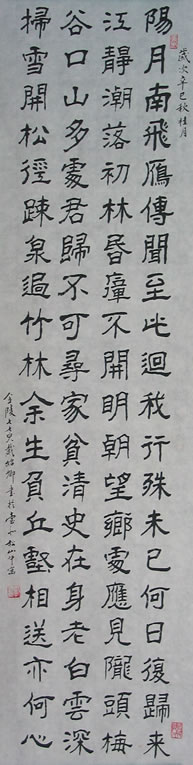 陽月南飛鴈傳聞至此迴我行殊未已何日復歸来
江靜潮落初林昏瘴不開明朝望鄉處應見隴頭梅
谷口山多處君歸不可尋家貧清史在身老白雲深
掃雪開松徑疎泉過竹林余生負丘壑相送亦何心
歲次辛巳秋桂月
金陵七十